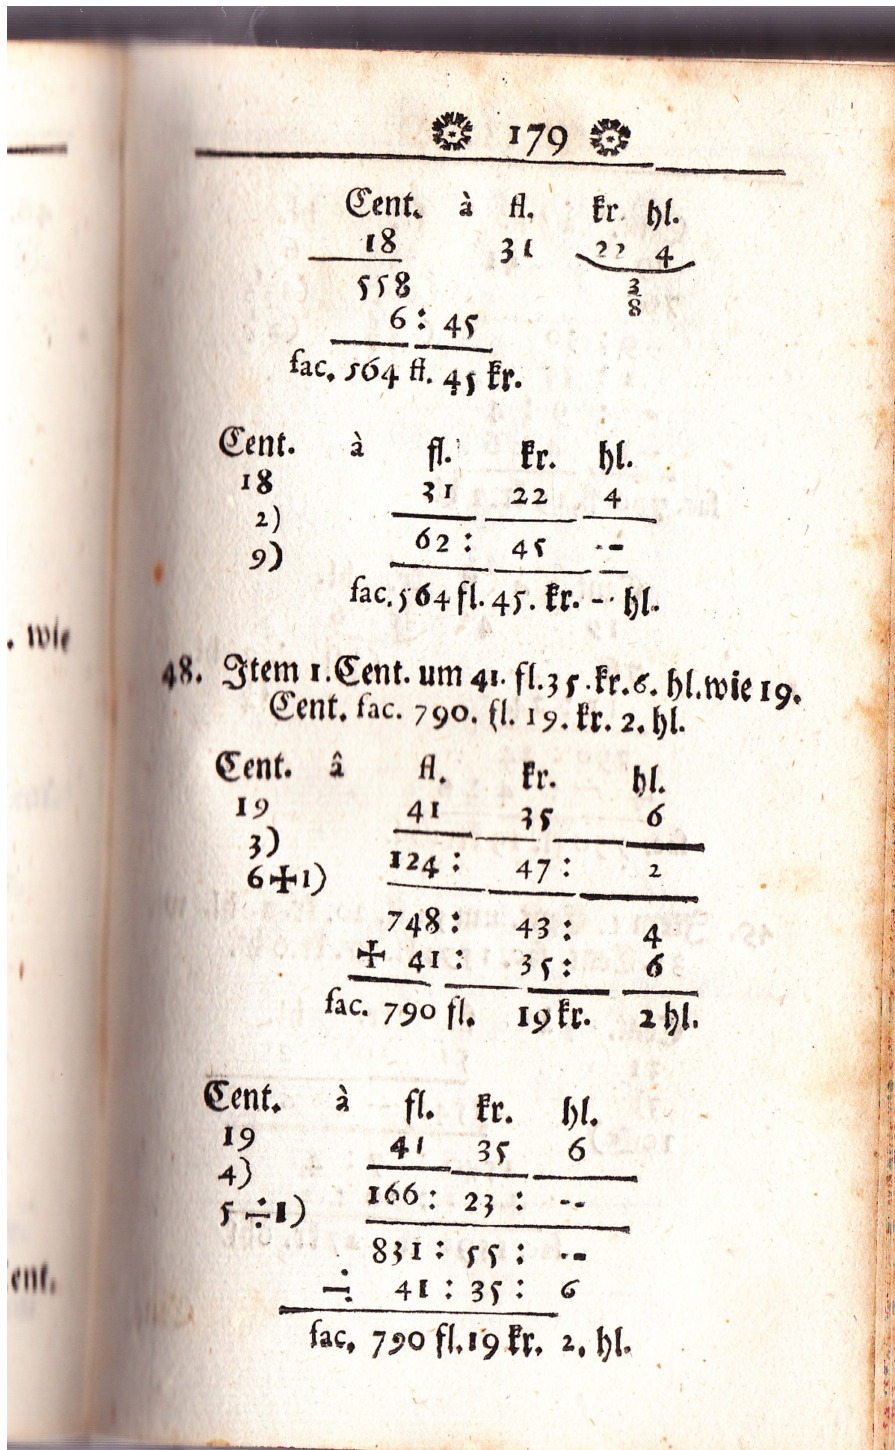 179
Cent. à fl. kr. hl.
18 31 22 4
558 3/8
6 : 45
fac. 564 fl. 45 kr.
Cent. à fl. kr. hl.
18 31 22 4
2) 62 : 45 --
9)
fac. 564 fl. 45. kr. -- hl.
48. Item 1. Cent. um 41. fl. 35. kr. 6. hl. wie 19.
Cent. fac. 790. fl. 19. kr. 2. hl.
Cent. â fl. kr. hl.
19 41 35 6
3)
6+1) 124 : 47 : 2
748 : 43 : 4
+ 41 : 35 : 6
fac. 790 fl. 19 kr. 2 hl.
Cent. à fl. kr. hl.
19 41 35 6
4)
5÷1) 166 : 23 : --
831 : 55 : --
÷ 41 : 35 : 6
fac. 790 fl. 19 kr. 2. hl.
. wie
ent.